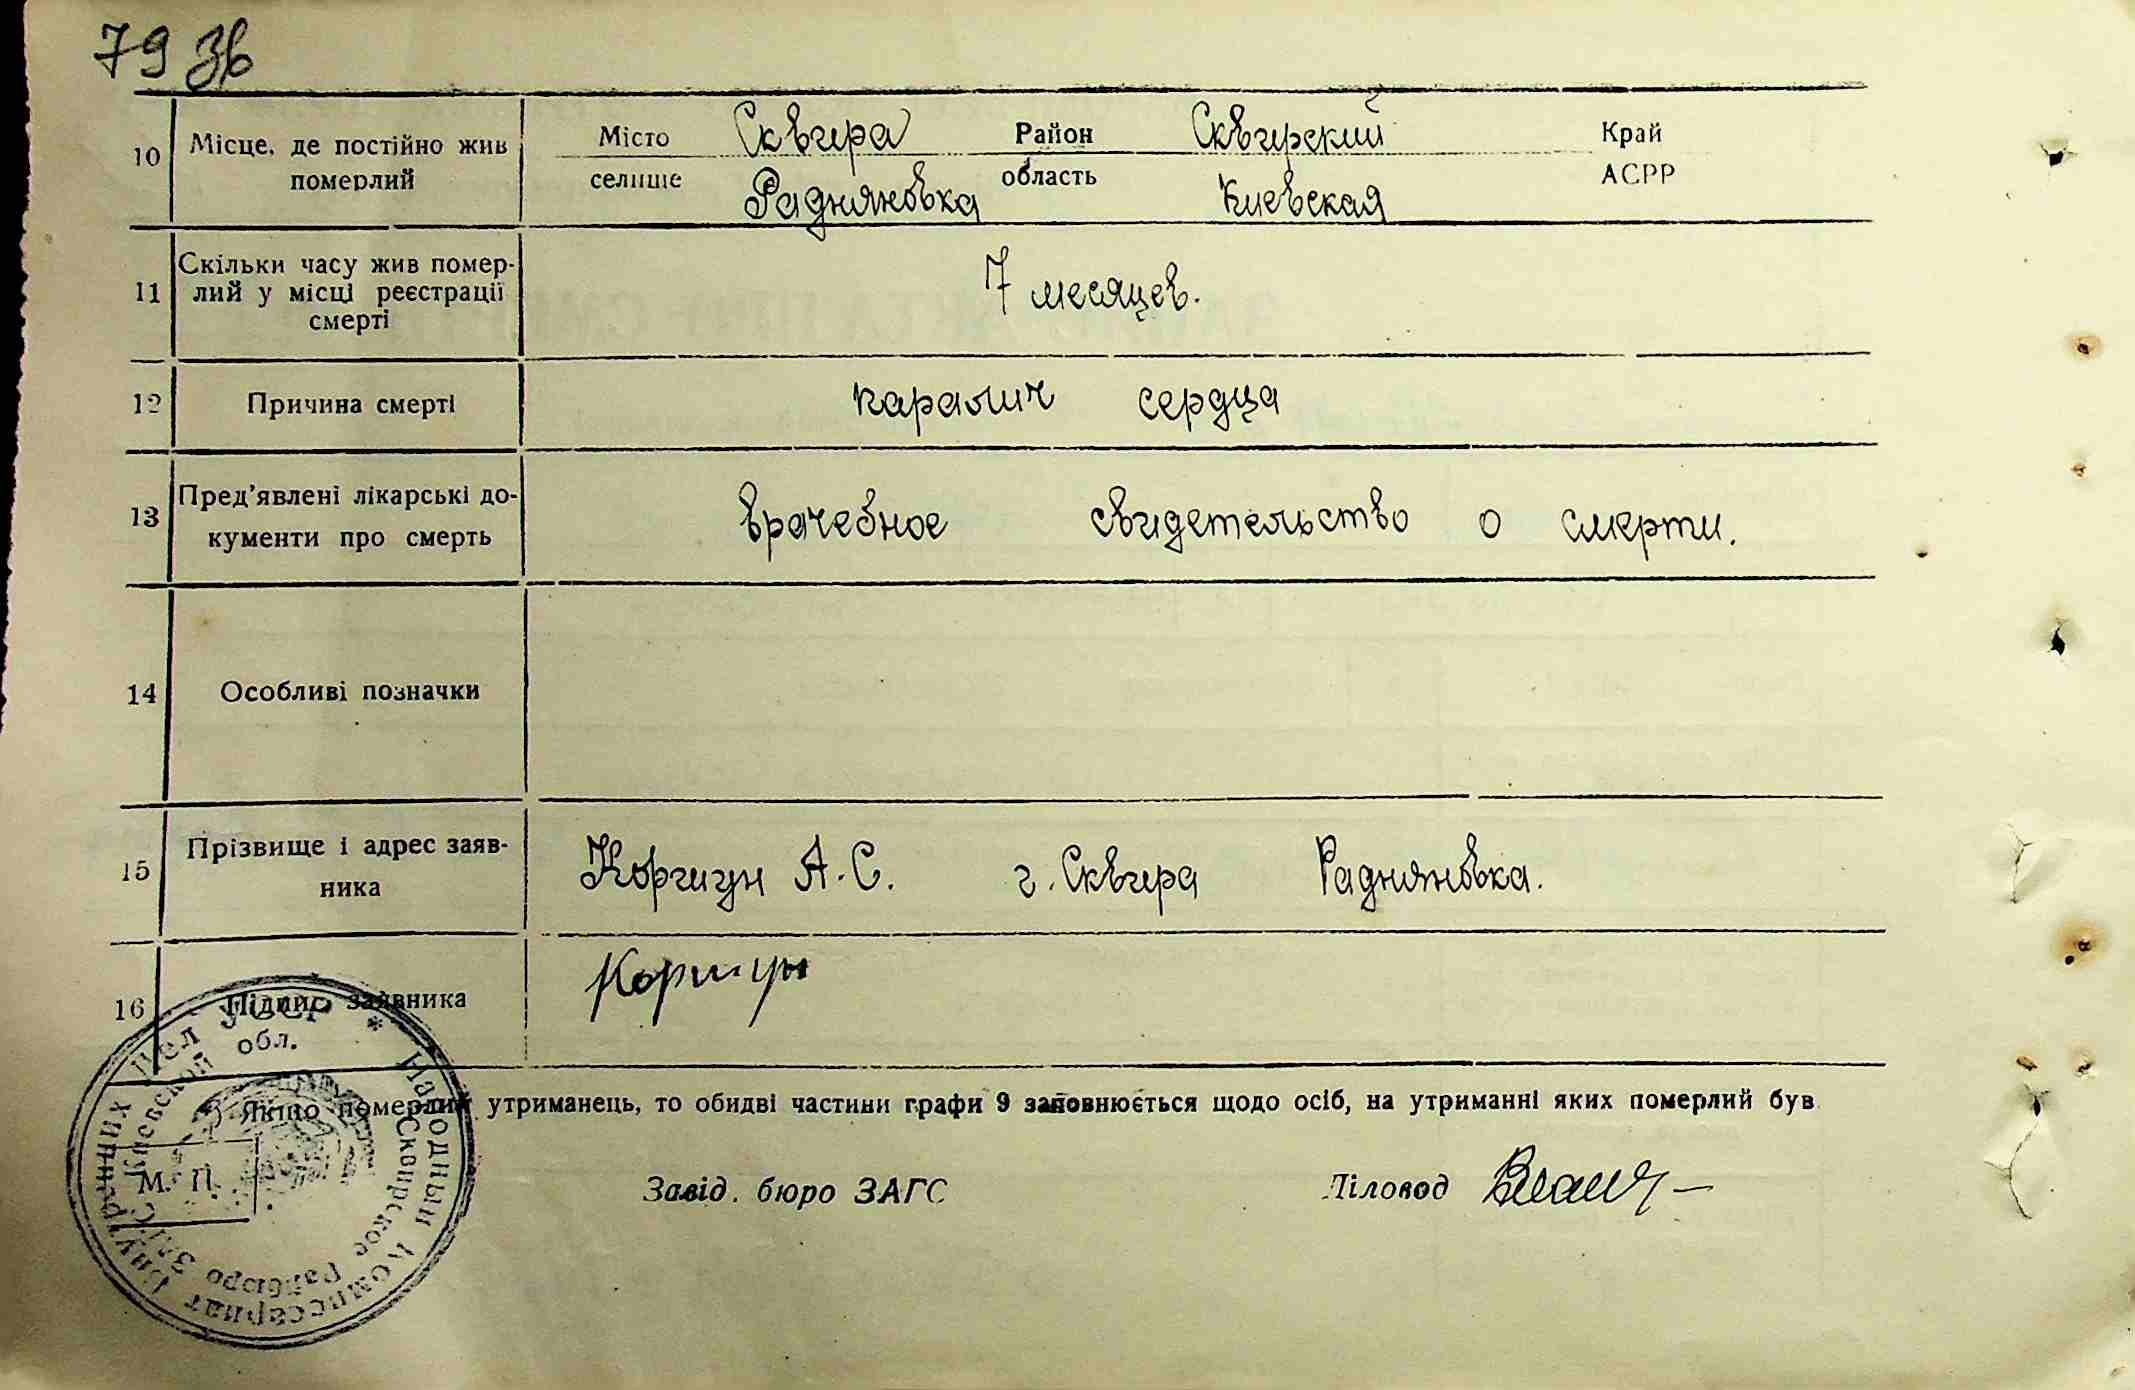 79 зв
10 Місце, де постійно жив померлий
Місто Сквира Район Сквирский Край
селище Радняновка область Киевская АСРР
11 Скільки часу жив помер-
лий у місці реєстрації
смерті
7 месяцев.
12 Причина смерті паралич сердца
13 Пред'явлені лікарські до-
кументи про смерть
врачебное свидетельство о смерти.
14 Особливі позначки
15 Прізвище і адрес заяв-
ника
Коршун А.С. г. Сквира Радняновка.
16 Підпис заявника Коршун
Якщо померлий утриманець, то обидві частини графи 9 заповнюється щодо осіб, на утриманні яких померлий був
М. П.
Завід. бюро ЗАГС Діловод
Народный Комиссариат Внутренних Дел УССР *
Сквирское Райбюро ЗАГС Киевской обл.